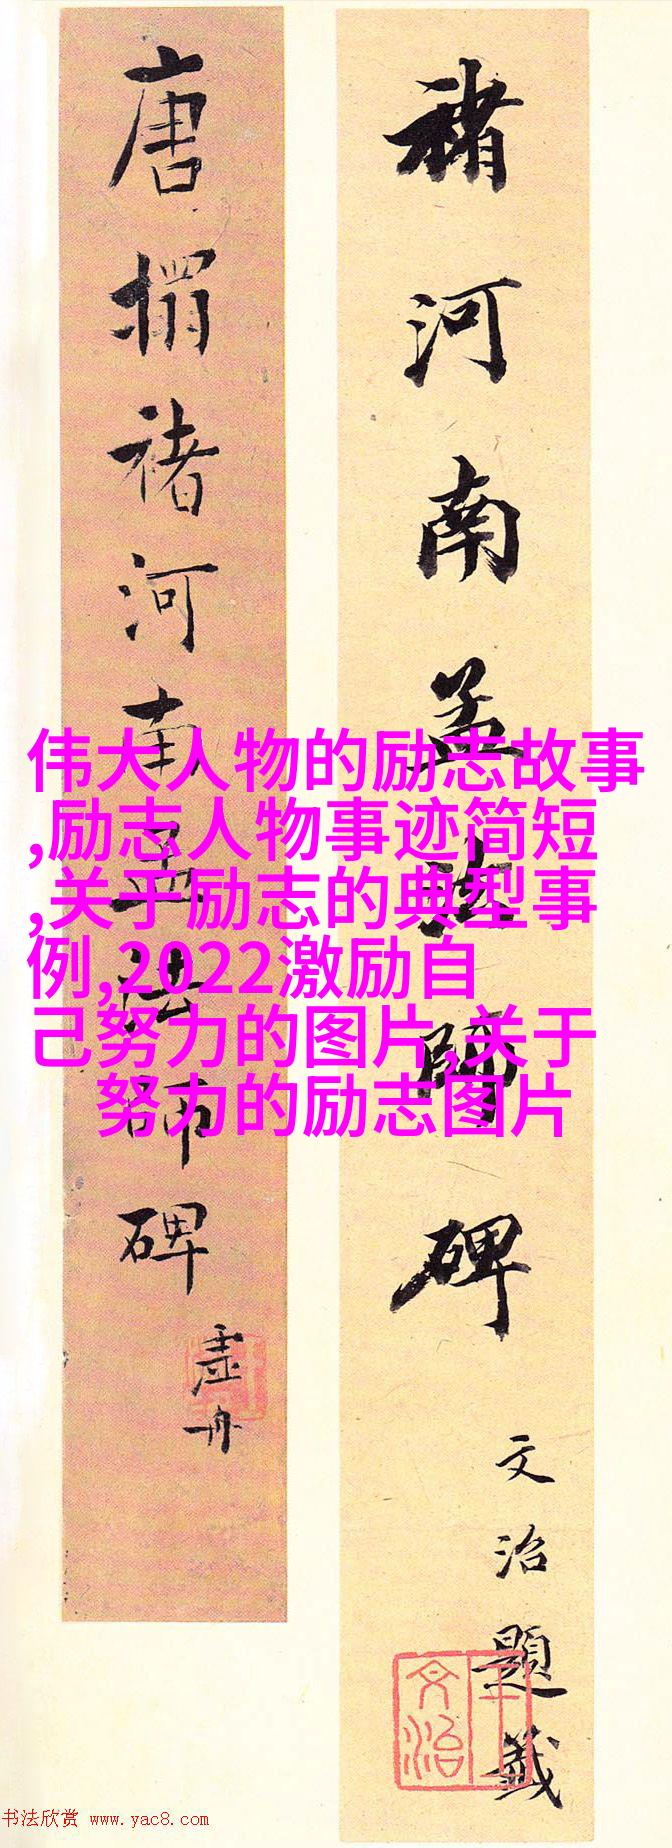 褚河南孟法師碑
文治題籤
王文治
唐搨褚河南孟法師碑
虛舟
伟大人物的励志故事
,励志人物事迹简短
,关于励志的典型事
例,2022激励自
己努力的图片,关于
努力的励志图片
书法欣赏 www.yac8.com